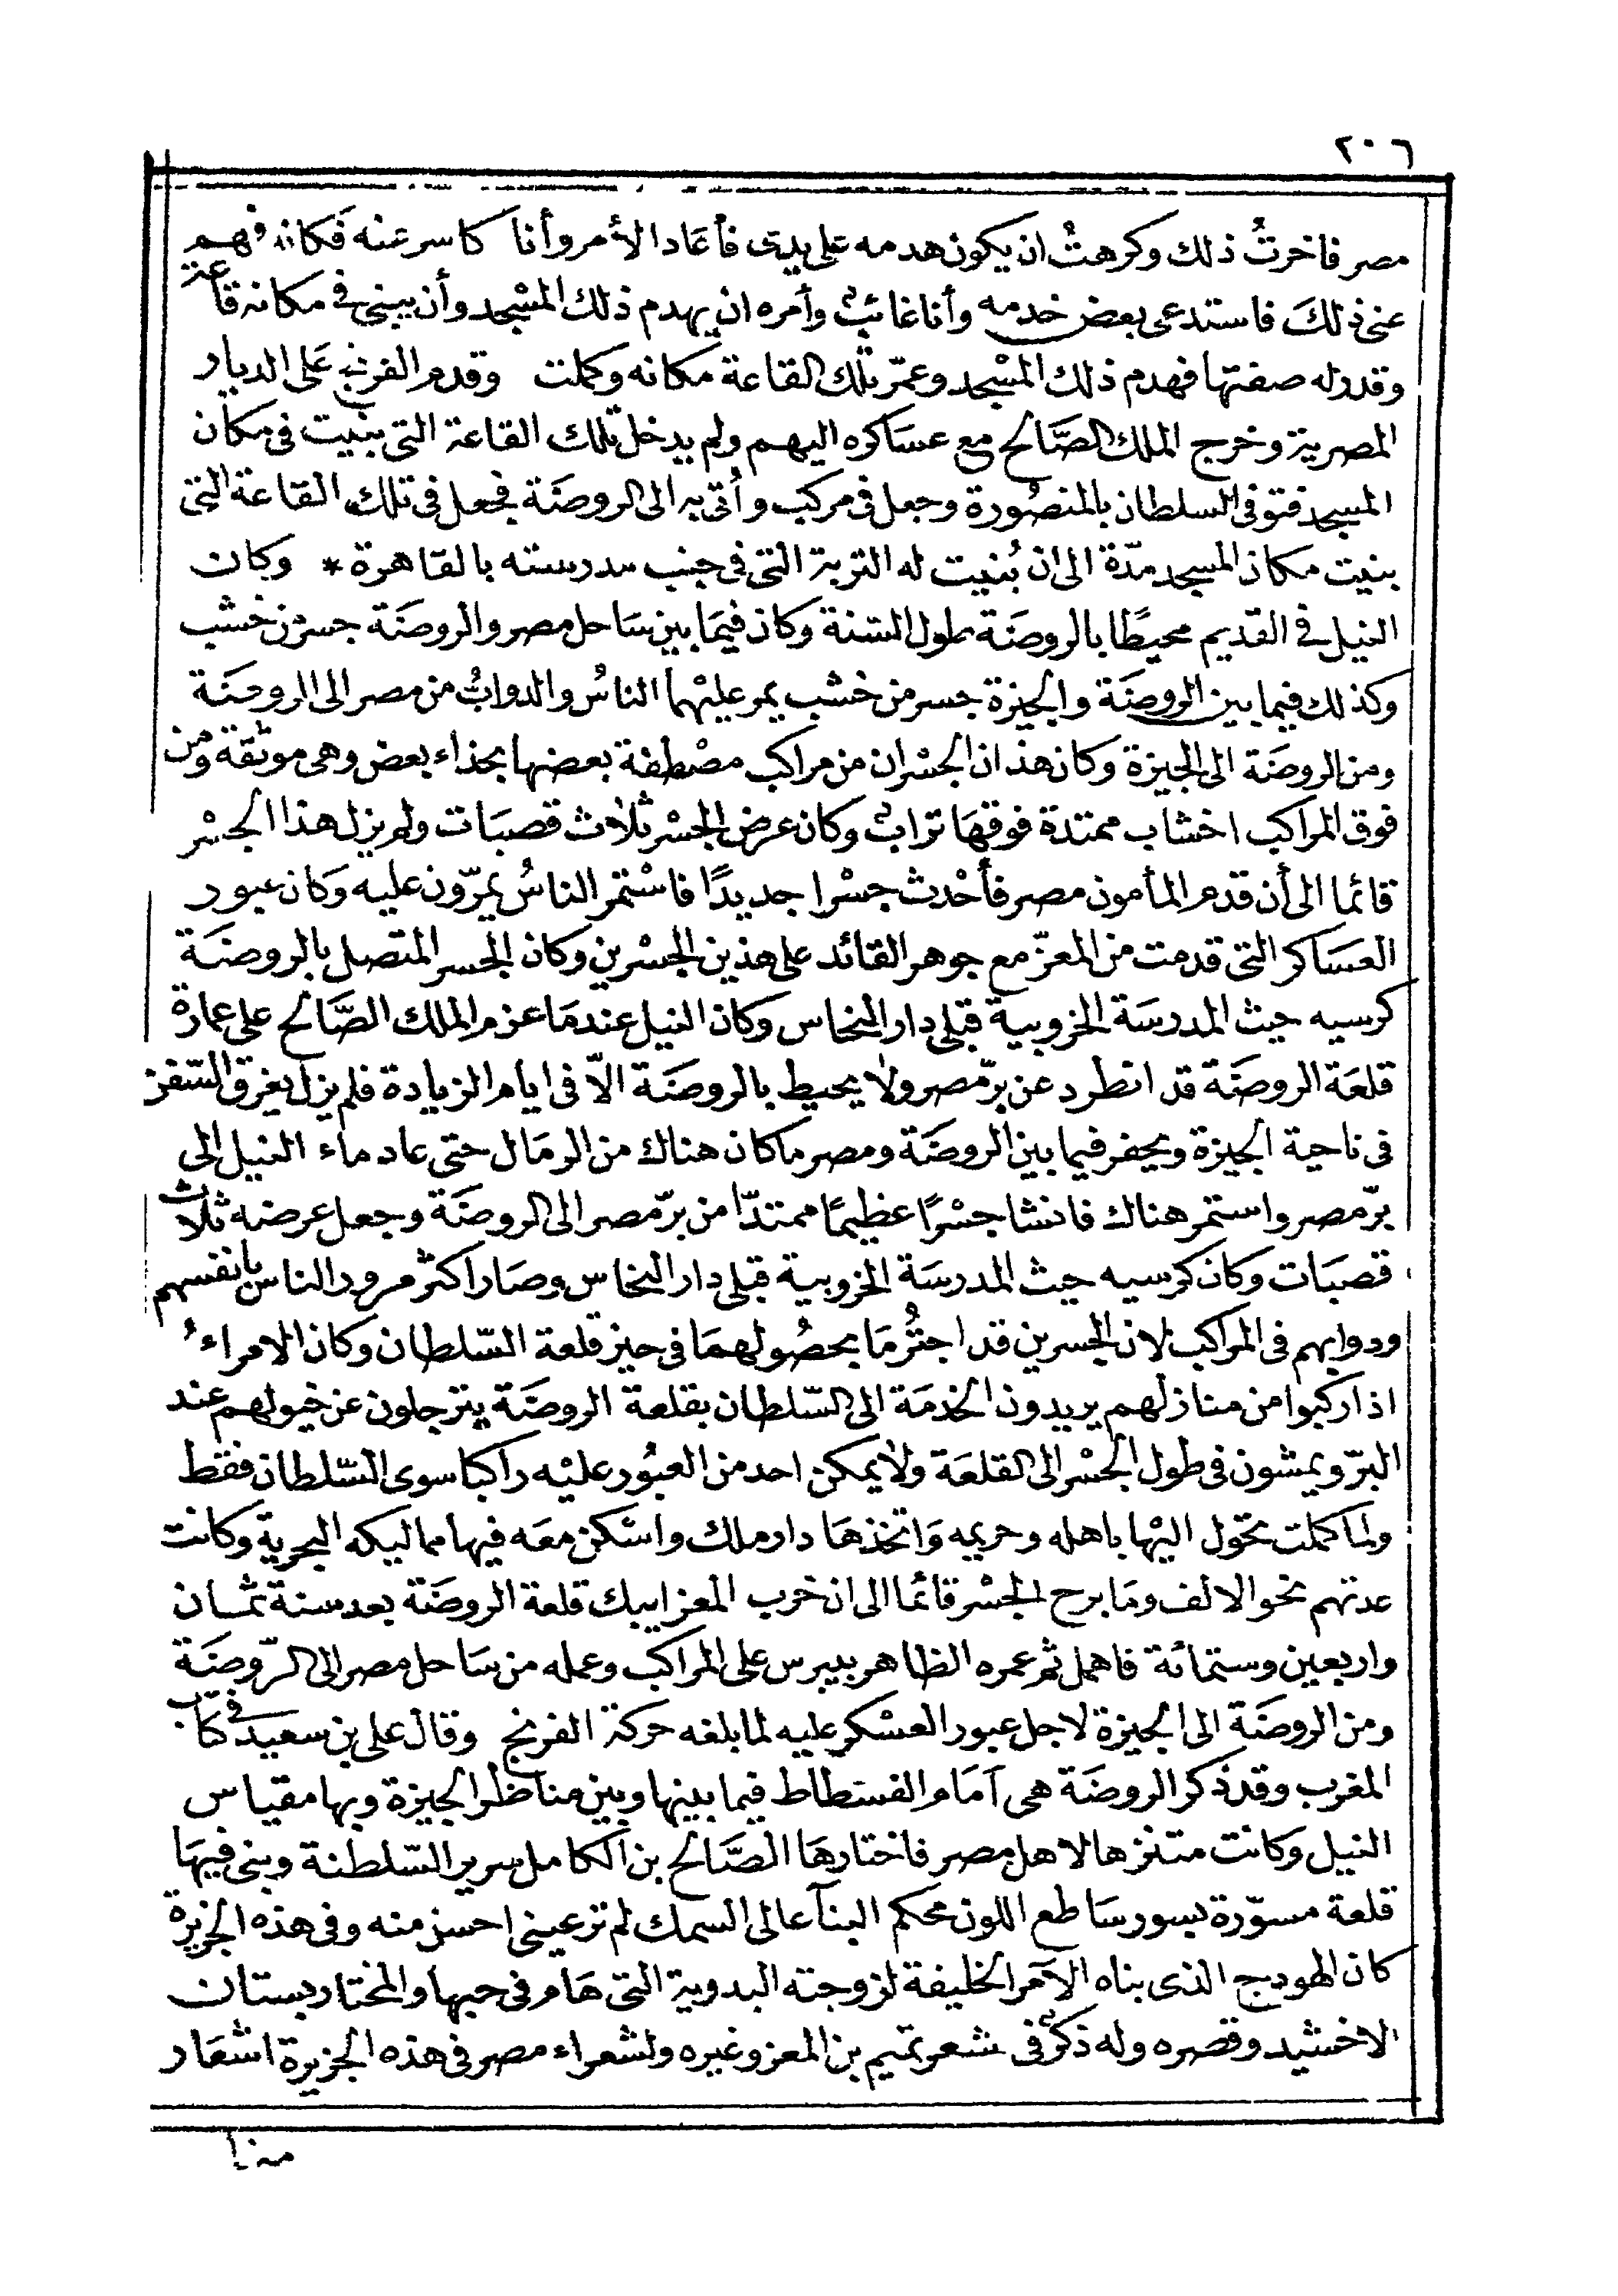 ٢٠٦
مصر فاخرتُ ذلك وكرهتُ ان يكون هدمه على يدى فأعاد الأمر وأنا كاسر عنه فكانه فهم
عنى ذلك فاستدعى بعض خدمه وأنا غائب وأمره ان يهدم ذلك المسْجد وأن يبنى فى مكانه قاعة
وقدر له صفتها فهدم ذلك المسْجد وعمّر تلك القاعة مكانه وكملت وقدم الفرنج عَلى الديار
المصرية وخرج الملك الصَّالح مع عسَاكره اليهم ولم يدخل تلك القاعة التى بنيت فى مكان
المسجد فتوفى السلطان بالمنصُورة وجعل فى مركب وأُتى به الى الروضَة فجعل فى تلك القاعة التى
بنيت مكان المسجد مدّة الى ان بُنيت له التربة التى فى جنب مدرسته بالقاهرة * وكان
النيل فى القديم محيطًا بالروضَة طول السّنة وكان فيمَا بين سَاحل مصر والروضَة جسر من خشب
وكذلك فيما بين الروضَة والجيزة جسر من خشب يمر عليْهما الناسُ والدوابُ من مصر الى الروضَة
ومن الروضَة الى الجيزة وكان هذان الجسْران من مراكب مصْطفة بعضها بحذاء بعض وهى موثقة ومن
فوق المراكب اخشاب ممتدة فوقهَا تراب وكان عرض الجسْر ثلاث قصبَات ولم يزل هذا الجسْر
قائما الى أن قدم المأمون مصر فأحْدث جسْرا جديدًا فاسْتمر الناسُ يمرّون عليه وَكان عبور
العسَاكر التى قدمت من المعزّ مع جوهر القائد على هذين الجسْرين وكان الجسر المتصل بالروضَة
كرسيه حيث المدرسَة الخروبية قبلى دار النحاس وكان النيل عندمَا عزم الملك الصَّالح على عمارة
قلعَة الروضَة قد انطرد عن برّ مصر ولا يحيط بالروضَة الاّ فى ايام الزيادة فلم يزل يغرق السّفن
فى ناحية الجيزة ويحفر فيما بين الروضَة ومصر ما كان هناك من الرمَال حتى عاد ماء النيل الى
برّ مصر واستمر هناك فانشا جسْرًا عظيمًا ممتدّا من برّ مصر الى الروضَة وجعل عرضه ثلاث
قصبَات وكان كرسيه حيث المدرسَة الخروبية قبلى دار النحاس وصَار اكثر مرور الناس بانفسهم
ودوابهم فى المراكب لان الجسرين قد احترُمَا بحصُولهمَا فى حيز قلعة السّلطان وكان الامراءُ
اذا ركبوا من منازلهم يريدون الخدمَة الى السّلطان بقلعة الروضَة يترجلون عن خيولهم عند
البرّ ويمشون فى طول الجسْر الى القلعَة ولا يمكن احد من العبُور عليْه راكبا سوى السّلطان فقط
ولما كملت تحّول اليْها باهله وحريمه وَاتخذهَا دار ملك واسْكن معَه فيها مماليكه البحرية وكانت
عدتهم نحو الالف ومَا برح الجسْر قائما الى ان خرب المعز ايبك قلعة الروضَة بعد سنة ثمان
واربعين وستمائة فاهمل ثم عمره الظاهر بيبرس على المراكب وعمله من سَاحل مصر الى الرّوضَة
ومن الروضَة الى الجيزة لاجل عبور العسْكر عليه لما بلغه حركة الفرنج وقال على بن سعيد فى كتاب
المغرب وقد ذكر الروضَة هى آمَام الفسْطاط فيما بينها وبين مناظر الجيزة وبها مقياس
النيل وكانت متنزها لاهل مصر فاختارهَا الصَّالح بن الكامل سرير السّلطنة وبنى فيهَا
قلعة مسوّرة بسور سَاطع اللون محكم البنآ عالى السمك لم تر عينى احسن منه وفى هذه الجزيرة
كان الهودج الذى بناه الآمر الخليفة لزوجته البدوية التى هَام فى حبها والمختار بستان
الاخشيد وقصره وله ذكرٌ فى شعر تميم بن المعز وغيره ولشعراء مصر فى هذه الجزيرة اشعَار
منها